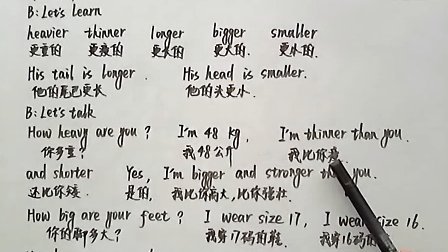 B: Let's learn
heavier thinner longer bigger smaller
更重的 更瘦的 更长的 更大的 更小的
His tail is longer. His head is smaller.
他的尾巴更长 他的头更小
B: Let's talk
How heavy are you? I'm 48 kg, I'm thinner than you
你多重? 我48公斤 我比你瘦
and shorter Yes, I'm bigger and stronger you.
还比你矮 是的, 我比你高大,比你强壮
How big are your feet? I wear size 17, I wear size 16.
你的脚多大? 我穿17码的鞋 我穿16码的